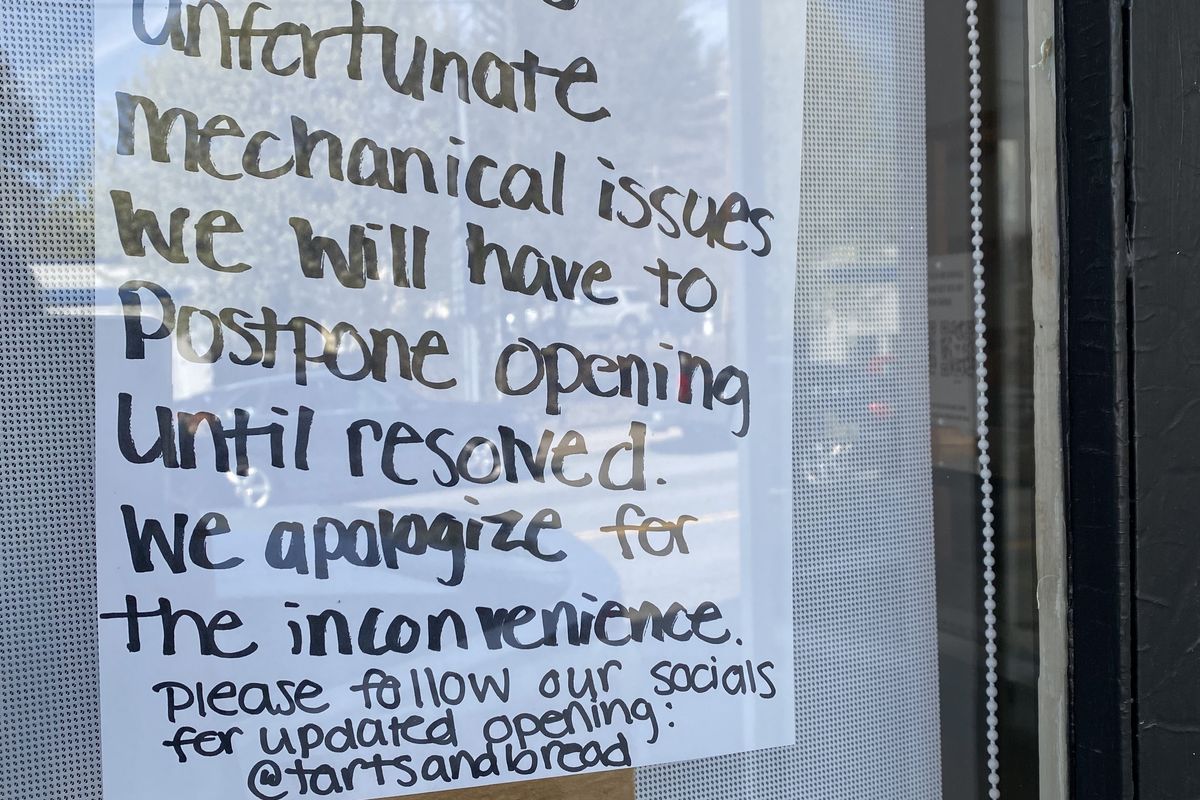 unfortunate
mechanical issues
We will have to
Postpone opening
Until resolved.
We apologize for
the inconvenience.
please follow our socials
for updated opening:
@tartsandbread